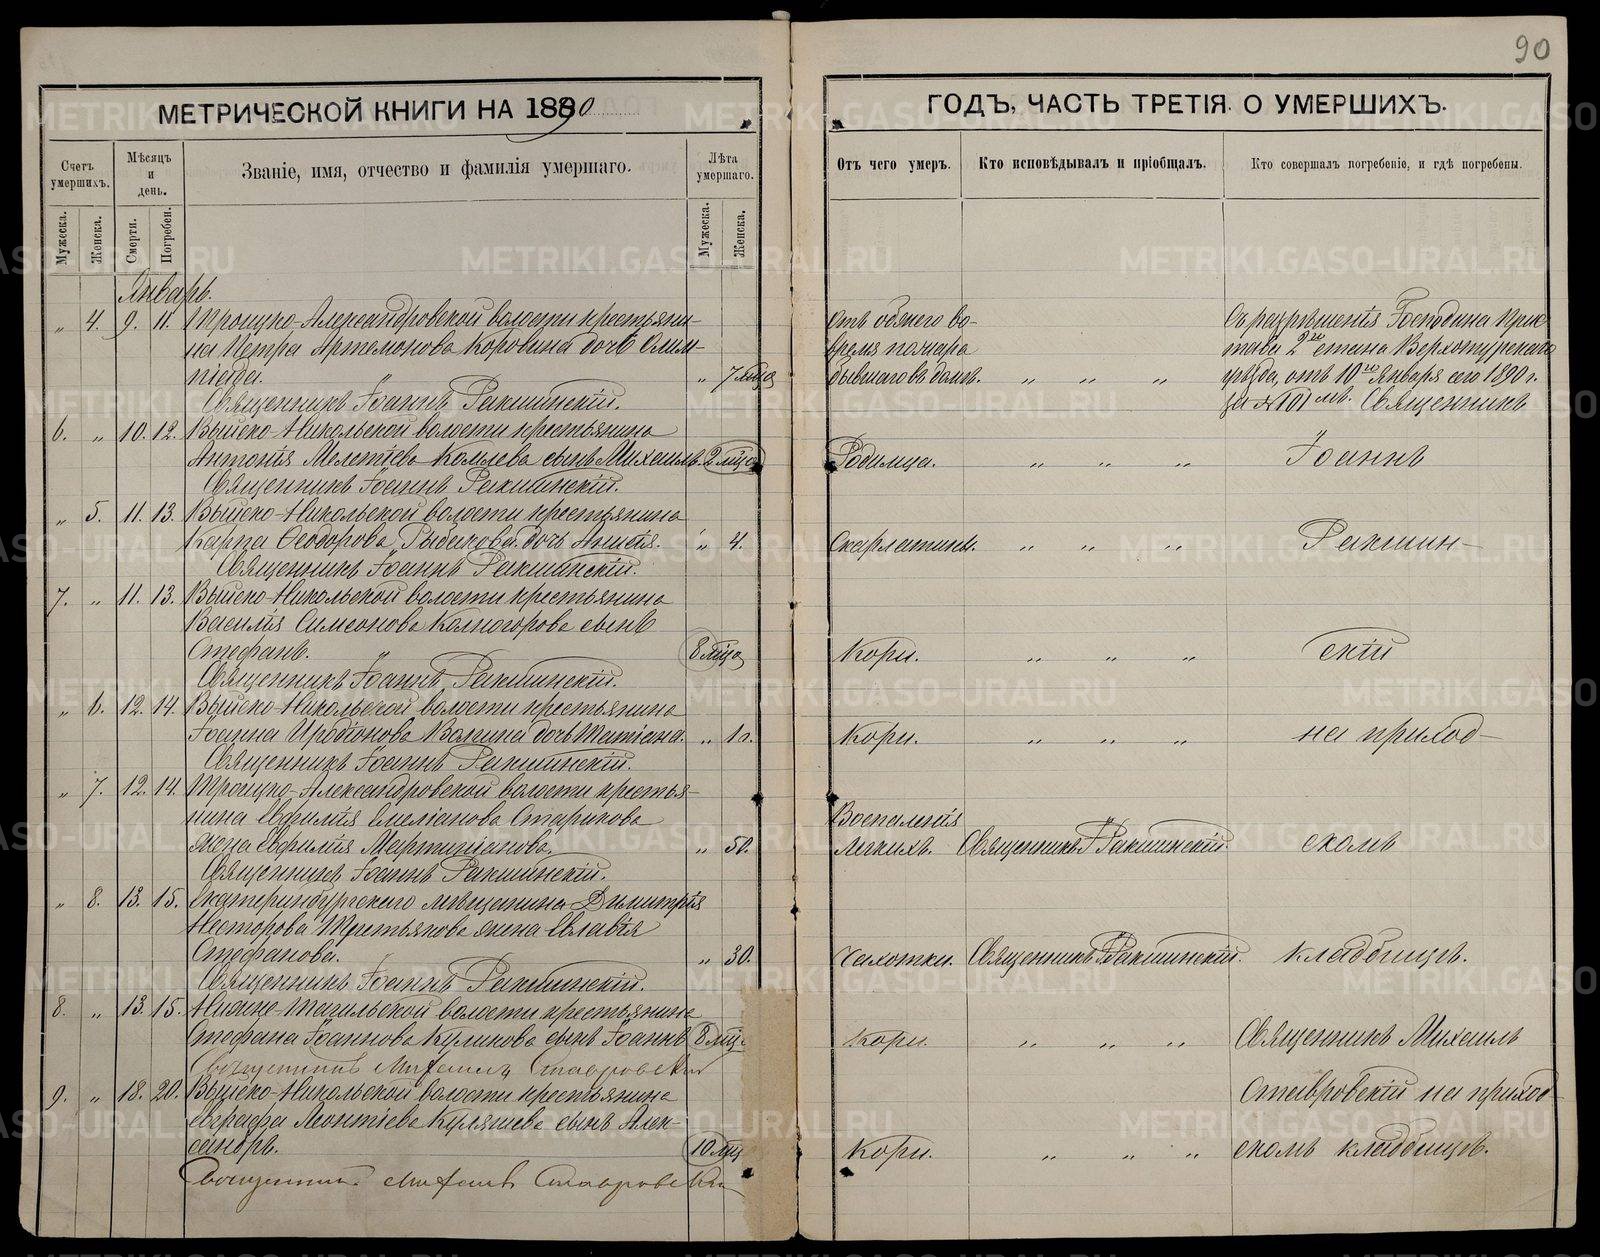 90
МЕТРИЧЕСКОЙ КНИГИ НА 1890
ГОДЪ, ЧАСТЬ ТРЕТІЯ. О УМЕРШИХЪ.
Счетъ умершихъ.
Мѣсяцъ и день.
Званіе, имя, отчество и фамилія умершаго.
Лѣта умершаго.
Отъ чего умеръ.
Кто исповѣдывалъ и пріобщалъ.
Кто совершалъ погребеніе, и гдѣ погребены.
Мужеска.
Женска.
Смерти.
Погребен.
Мужеска.
Женска.
Январь.
„ 4. 9. 11. Троицко-Александровской волости крестьяни-
на Петра Артемонова Коровина дочь Олим-
піада. „ 7 мѣся
Священникъ Іоаннъ Ракшинскій.
6. „ 10. 12. Выйско-Никольской волости крестьянина
Антонія Мелетіева Комлева сынъ Михаилъ. 2 мѣся
Священникъ Іоаннъ Ракшинскій.
„ 5. 11. 13. Выйско-Никольской волости крестьянина
Карпа Ѳеодорова Рыбакова дочь Анисія. „ 4.
Священникъ Іоаннъ Ракшинскій.
7. „ 11. 13. Выйско-Никольской волости крестьянина
Василія Симеонова Колногорова сынъ
Стефанъ. 8 мѣся
Священникъ Іоаннъ Ракшинскій.
„ 6. 12. 14. Выйско-Никольской волости крестьянина
Іоанна Иродіонова Волина дочь Татіана. „ 1 г.
Священникъ Іоаннъ Ракшинскій.
„ 7. 12. 14. Троицко-Александровской волости крестья-
нина Емеліанова Старикова
жена Мартиніанова. „ 50.
Священникъ Іоаннъ Ракшинскій.
„ 8. 13. 15. Екатеринбургскаго мѣщанина Димитрія
Несторова Третьякова жена Евлавія
Стефанова. „ 30.
Священникъ Іоаннъ Ракшинскій.
8. „ 13. 15. Нижне-Тагильской волости крестьянина
Стефана Іоаннова Куликова сынъ Іоаннъ 8 мѣ
Священникъ Михаилъ Ставровскій
9. „ 18. 20. Выйско-Никольской волости крестьянина
Евграфа Леонтіева Куляшева сынъ Алек-
сандръ. 10 мѣ
Священникъ Михаилъ Ставровскій
Отъ во-
время пожара
бывшаго въ домѣ. „ „ „
Родимца. „ „ „
Скарлатины. „ „ „
Кори. „ „ „
Кори. „ „ „
Воспаленія
легкихъ. Священникъ І Ракшинскій.
Чахотки. Священникъ І Ракшинскій.
Кори. „ „ „
Кори. „ „ „
Съ разрѣшенія Господина Прис
тава 2го стана Верхотурскаго
уѣзда, отъ 10го Января сего 1890 г.
за № 101мъ. Священникъ
Іоаннъ
Ракшин-
скій
на приход-
скомъ
кладбищѣ.
Священникъ Михаилъ
Ставровскій на приход-
скомъ кладбищѣ.
METRIKI.GASO-URAL.RU